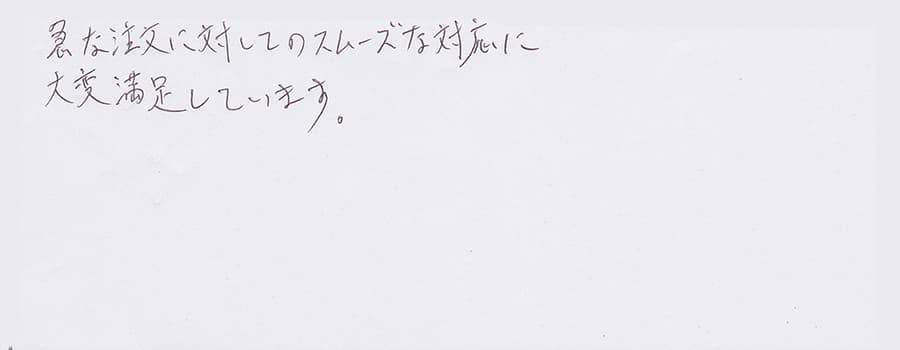 急な注文に対してのスムーズな対応に
大変満足しています。